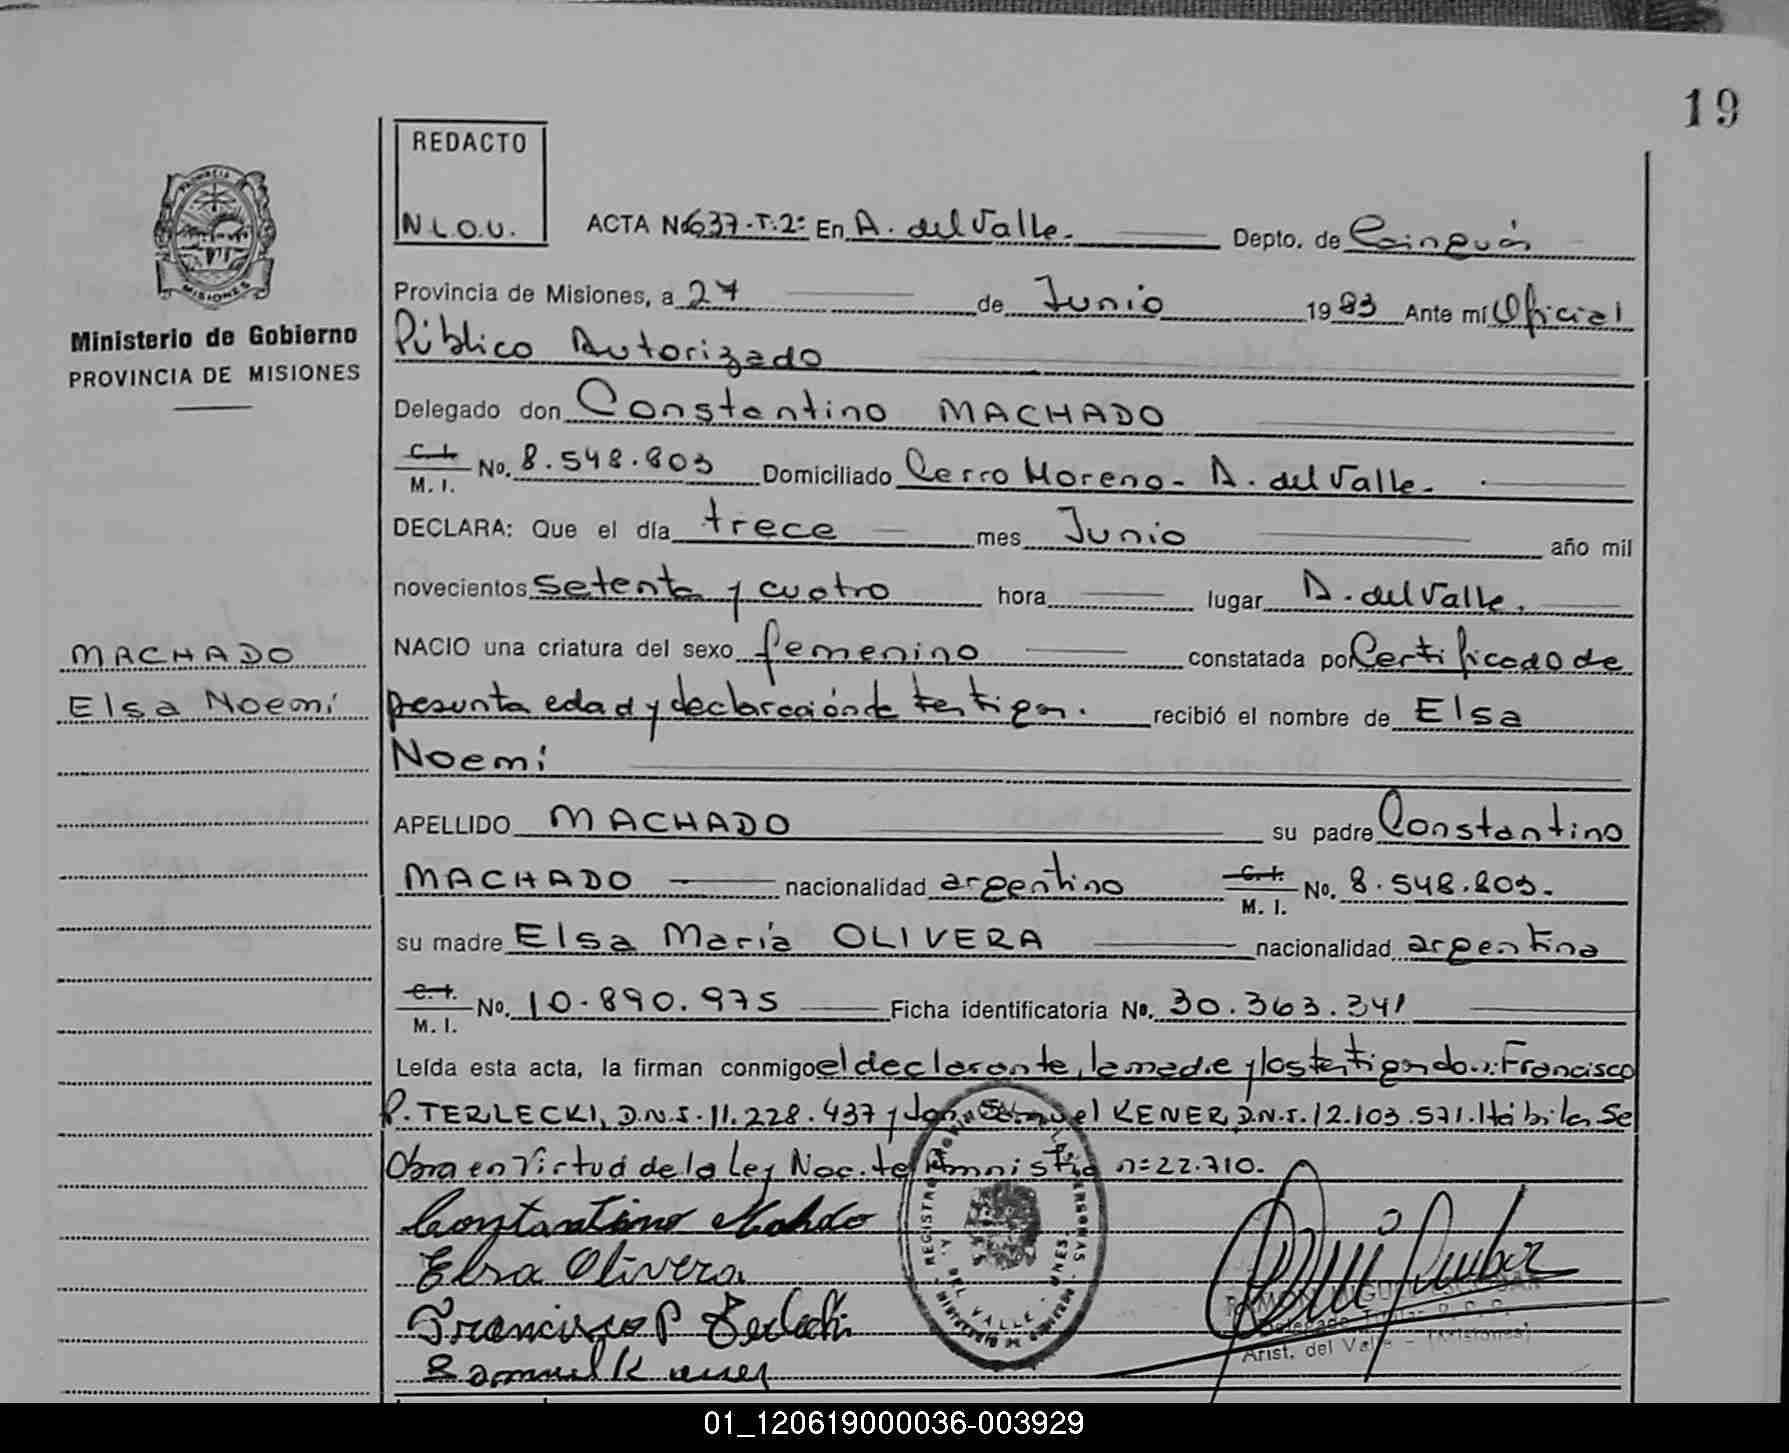 19
REDACTO
N.L.O.U.
ACTA No 637-T.2º En A. del Valle.- Depto. de Cainguás
Provincia de Misiones, a 27 de Junio 1983 Ante mí Oficial
Público Autorizado
Delegado don Constantino MACHADO
C. I. M. I. No. 8.548.803 Domiciliado Cerro Moreno - A. del Valle.-
DECLARA: Que el día trece mes Junio año mil
novecientos setenta y cuatro hora lugar A. del Valle.
NACIO una criatura del sexo femenino constatada por Certificado de
presunta edad y declaración de testigos. recibió el nombre de Elsa
Noemi
APELLIDO MACHADO su padre Constantino
MACHADO nacionalidad argentino C. I. M. I. No. 8.548.803.
su madre Elsa María OLIVERA nacionalidad argentina
C. I. M. I. No. 10.890.975 Ficha identificatoria No. 30.363.341
Leída esta acta, la firman conmigo el declarante, la madre y los testigos don: Francisco
P. TERLECKI, D.N.I. 11.228.437 y don Samuel KENER, D.N.I. 12.103.571. Hábiles Se
Obra en Virtud de la Ley Nac. de Amnistía nº 22.710.
Constantino Machado
Elsa Olivera
Francisco P Terlecki
Samuel Kener
REGISTRO PERSONAS
DEL VALLE
MISIONES
RAMON MIGUEL
Delegado Titular
Arist. del Valle - (Misiones)
PROVINCIA
MISIONES
Ministerio de Gobierno
PROVINCIA DE MISIONES
MACHADO
Elsa Noemi
01_120619000036-003929